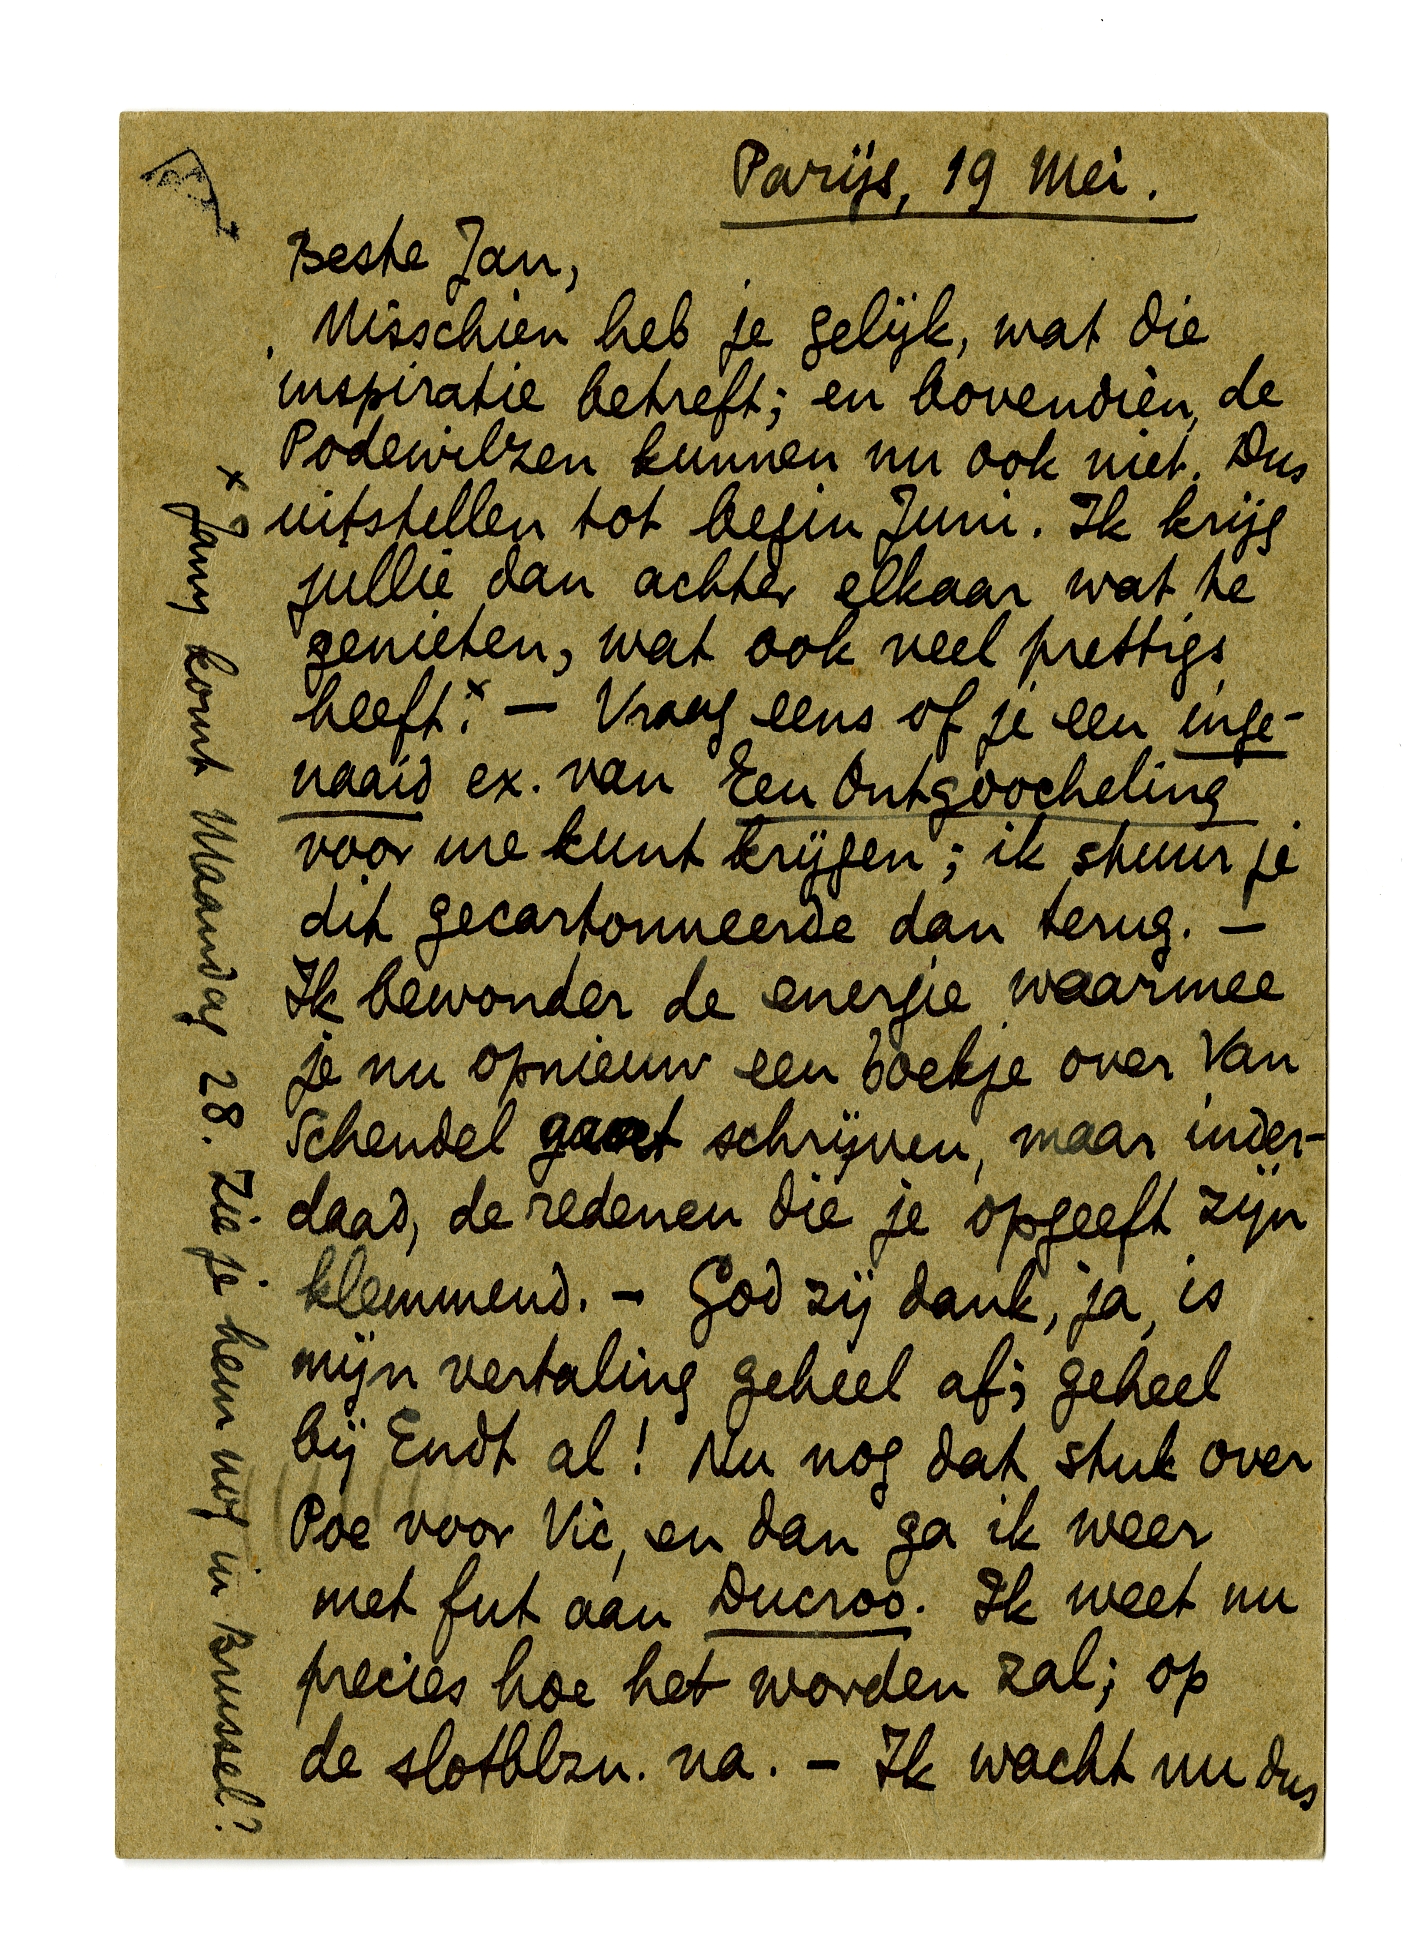 Parijs, 19 Mei.
Beste Jan,
Misschien heb je gelijk, wat die
inspiratie betreft; en bovendien, de
Podewilzen kunnen nu ook niet. Dus
uitstellen tot begin Juni. Ik krijg
jullie dan achter elkaar wat te
genieten, wat ook veel prettigs
heeft.x — Vraag eens of je een inge-
naaid ex. van Een Ontgoocheling
voor me kunt krijgen; ik stuur je
dit gecartonneerde dan terug. —
Ik bewonder de energie waarmee
je nu opnieuw een boekje over Van
Schendel gaat schrijven, maar inder-
daad, de redenen die je opgeeft zijn
klemmend. — God zij dank, ja, is
mijn vertaling geheel af; geheel
bij Endt al! Nu nog dat stuk over
Poe voor Vic, en dan ga ik weer
met fut aan Ducroo. Ik weet nu
precies hoe het worden zal; op
de slotblzn. na. — Ik wacht nu dus
x Jany komt Maandag 28. Zie je hem nog in Brussel?